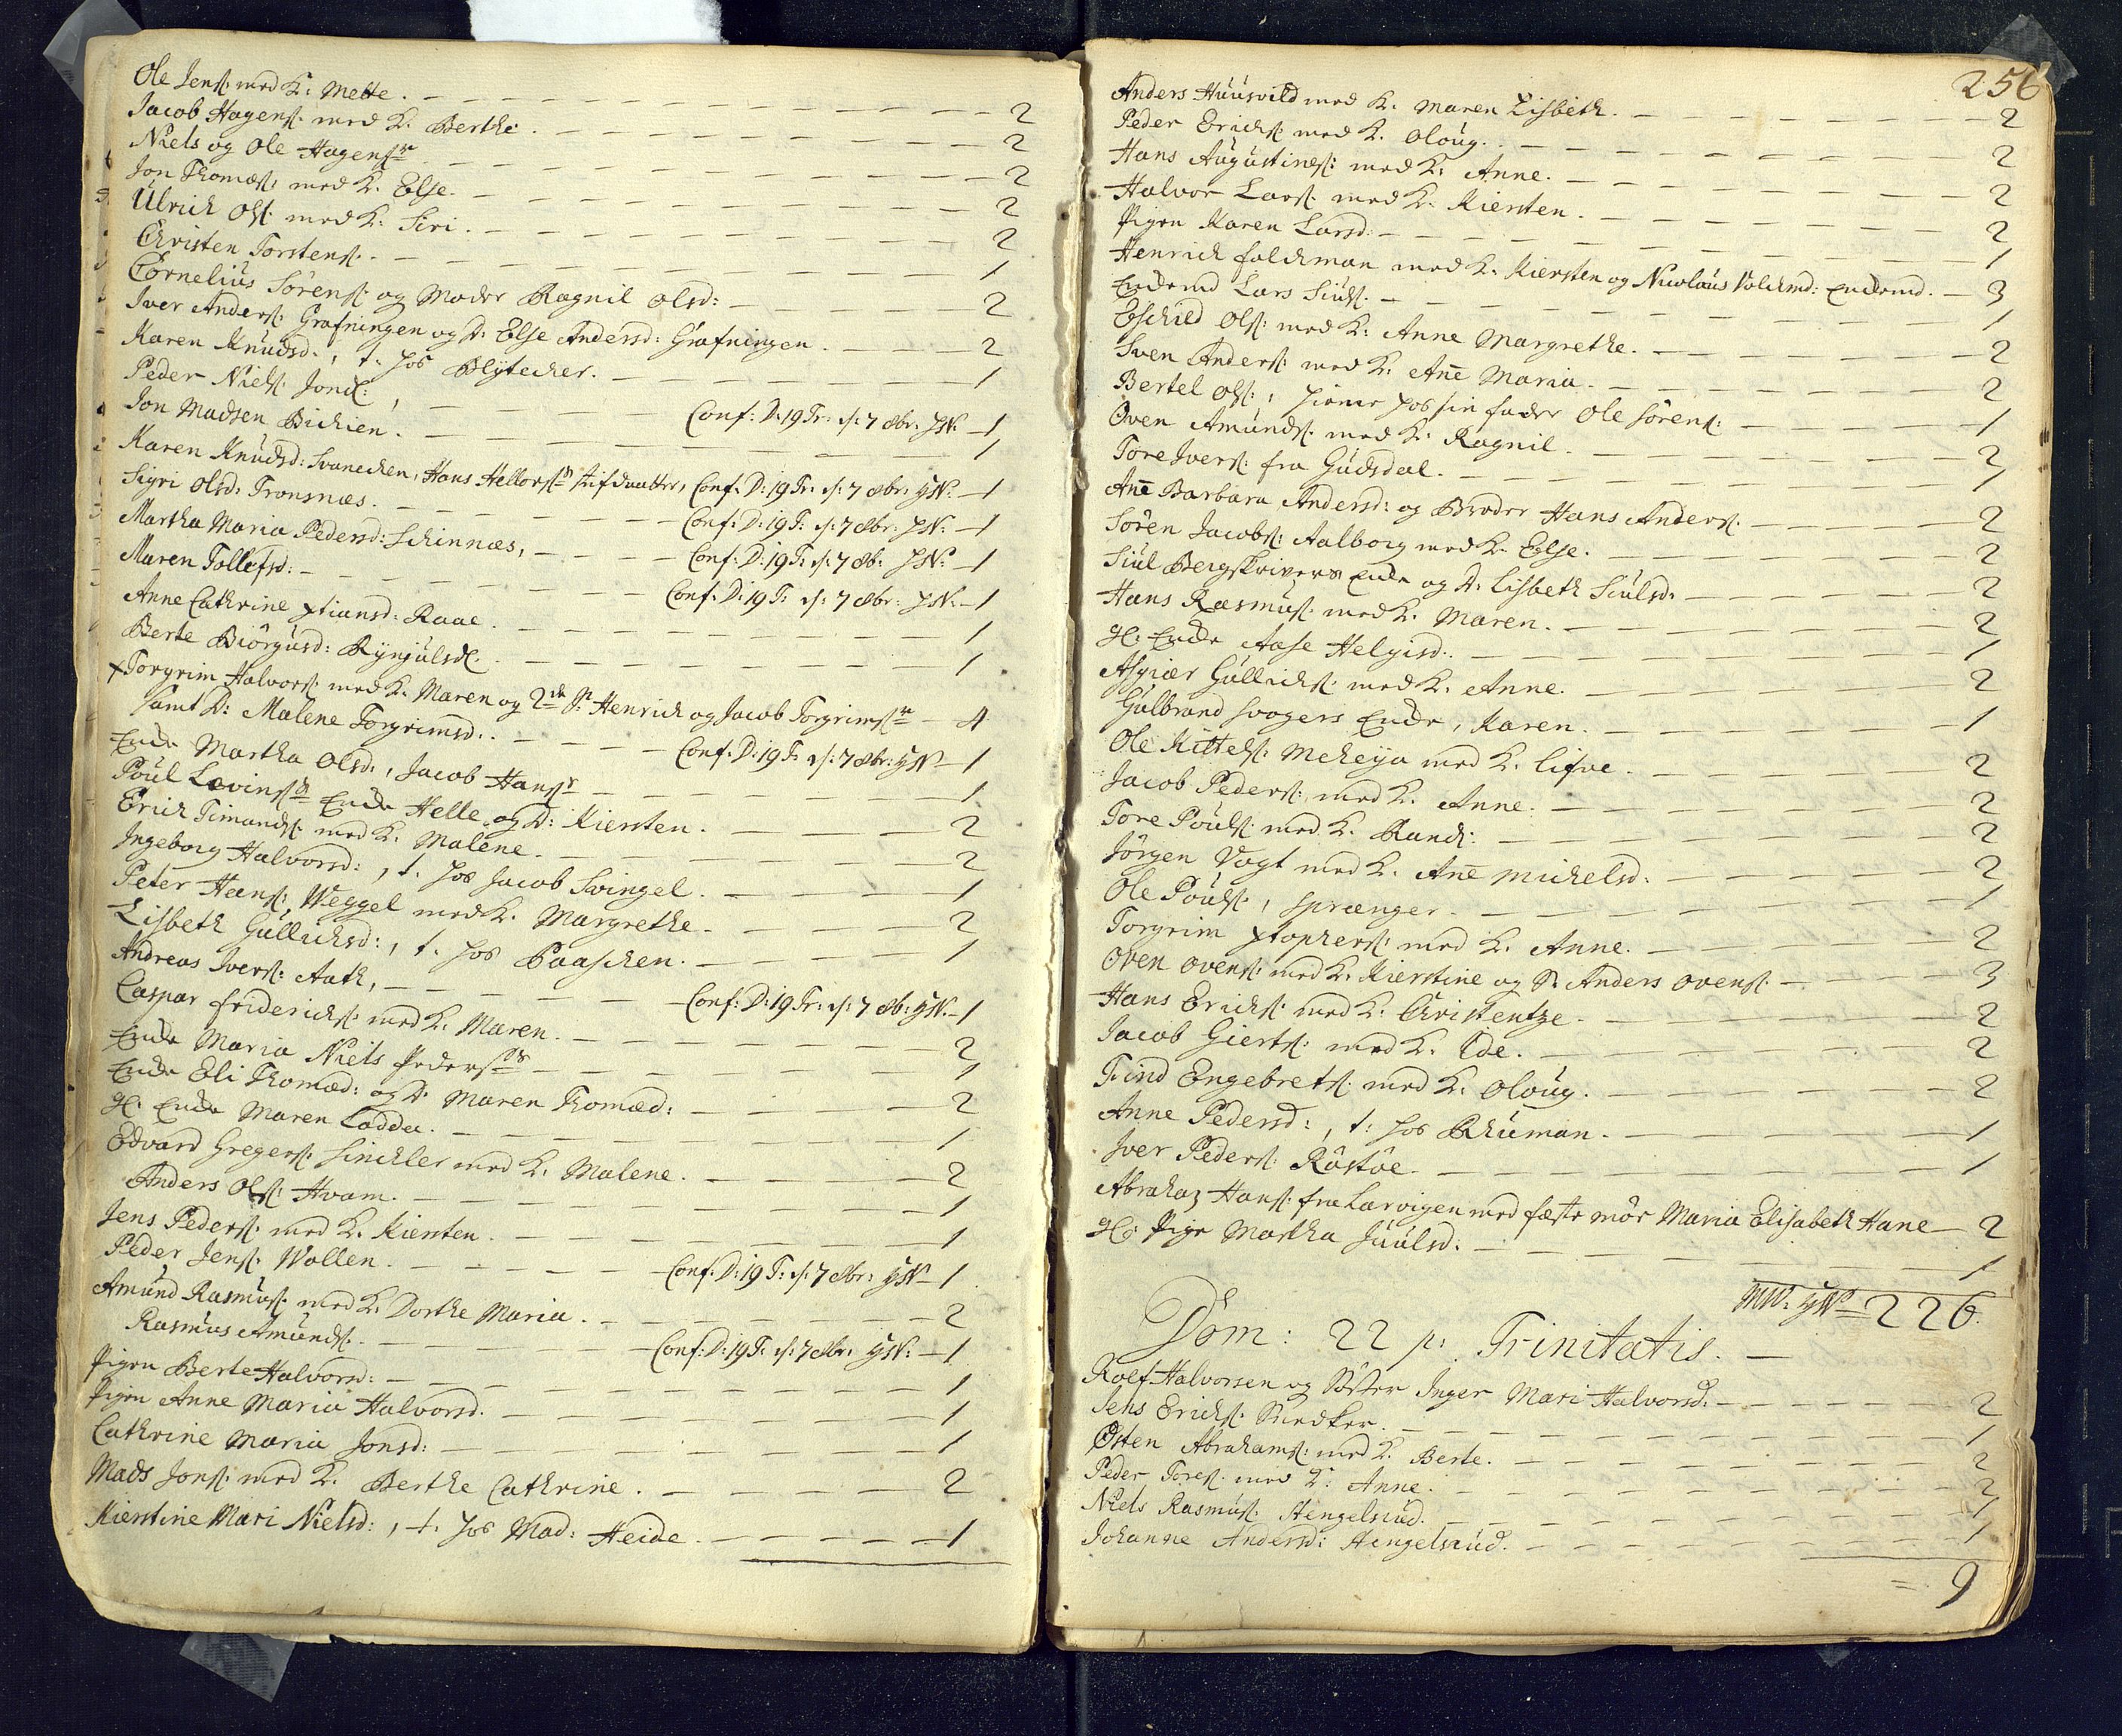 Ole Jens: med K: Mette. 2
Jacob Hagens: med K. Berthe. 2
Niels og Ole Hagens: 2
Jon Thomæs: med K: Else. 2
Ulrich Ols: med K: Siri. 2
Christen Torstens: 1
Cornelius Sörens: og Moder Ragnil Olsd: 2
Iver Anders: Grafningen og D: Else Andersd: Grafningen. 2
Karen Knudsd:, t. hos Blytecher. 1
Peder Niels: Jond:, Conf: D: 19 Tr: s: 7 8br: 1
Jon Madsen Bichien. 1
Karen Knudsd: Svanechen, Hans Hellors: Stifdaatter, Conf: D: 19 Tr: s: 7 8br: 1
Sigri Olsd: Tronsnæs. Conf: D: 19 T: s: 7 8br: 1
Martha Maria Pedersd: Schinnæs, Conf: D: 19 T: s: 7 8b: 1
Maren Tollefsd: Conf: D: 19 T: s: 7 8br: 1
Anne Cathrine Xtiansd: Raae. 1
Berte Biörgusd: 1
Torgrim Halvors: med K. Maren og 2de S: Henrich og Jacob Torgrims: 4
samt D: Malene Torgrimsd: Conf: D: 19 T: s: 7 8br: 1
Encke Martha Olsd:, Jacob Hans: 1
Poul Lavins: Encke Helle og D: Kiersten. 2
Erich Timands: med K. Malene. 2
Ingeborg Halvorsd:, t. hos Jacob Swingel. 1
Peter Hans: Weggel med K. Margrethe. 2
Lisbeth Gullichsd:, t. hos Paaschen. 1
Andreas Ivers: Aath, Conf: D: 19 Tr: s: 7 8b: 1
Caspar Friderichs: med K: Maren. 2
Encke Maria Niels Peders: 1
Encke Eli Thomæd: og D. Maren Thomæd: 2
gl: Encke Maren Ladda. 1
Edvard Gregers: Sinchler med K. Malene. 2
Anders Ols: Hvam. 1
Jens Peders: med K. Kiersten. 1
Peder Jens: Wollen. Conf: D: 19 T: s: 7 8br: 1
Amund Rasmus: med K. Dorthe Maria. 2
Rasmus Amunds: Conf: D: 19 T: s: 7 8br: 1
Pigen Berte Halvorsd: 1
Pigen Anne Maria Halvorsd. 1
Cathrine Maria Jonsd: 1
Mads Jons: med K. Berthe Cathrine. 2
Kierstine Mari Nielsd:, t. hos Mad: Heide. 1
256
Anders Huusvild med K. Maren Lisbeth. 2
Peder Erichs: med K. Oloug. 2
Hans Augustines: med K. Anne. 2
Halvor Lars: med K. Kiersten. 2
Pigen Karen Larsd: 1
Henrich Folchman med K. Kiersten og Nicolaus Volckmd: Enckemd. 3
Enckemd Lars Siuls: 1
Eschild Ols: med K: Anne Margrethe. 2
Sven Anders: med K. Ane Maria. 2
Bertel Ols:, hiemme hos sin fader Ole Sörens: 1
Oven Amunds: med K: Ragnil. 2
Tore Ivers: fra Gudsdal. 1
Ane Barbara Andersd: og Broder Hans Anders: 2
Sören Jacobs: Aalborg med K. Eglse. 2
Siul Bergskrivers Encke og D. Lisbeth Siulsd: 2
Hans Rasmus: med K. Maren. 2
gl: Encke Aase Helgisd: 1
Asgier Gullichs: med K. Anne. 2
Gulbrand Svagers Encke, Karen. 1
Ole Kittels: Meheya med K. Lifve. 2
Jacob Peders: med K. Anne. 2
Tore Pouls: med K. Randi: 2
Jörgen Vogt med K. Ane Michelsd: 2
Ole Pouls:, Sprænger. 1
Torgrim Xtophers: med K. Anne. 2
Oven Ovens: med K. Kierstine og S. Anders Ovens: 3
Hans Erichs: med K. Christentze. 2
Jacob Gierts: med K. Ide. 2
Find Engebrets: med K. Oloug. 2
Anne Pedersd:, t: hos Bhuman. 1
Iver Peders: Röstöe. 1
Abraham Hans: fra Larvigen med fæste möe Maria Elisabeth Hane 2
gl: Pige Martha Juulsd: 1
226.
Dom: 22 p: Trinitatis.
Roef Halvorsen og Söster Inger Mari Halvorsd: 2
Jens Erichs: Snedker. 1
Östen Abrahams: med K. Berte. 2
Peder Tores: med K. Anne. 2
Niels Rasmus: Hengelsrud. 1
Johanne Andersd: Hengelsrud. 1
= 9